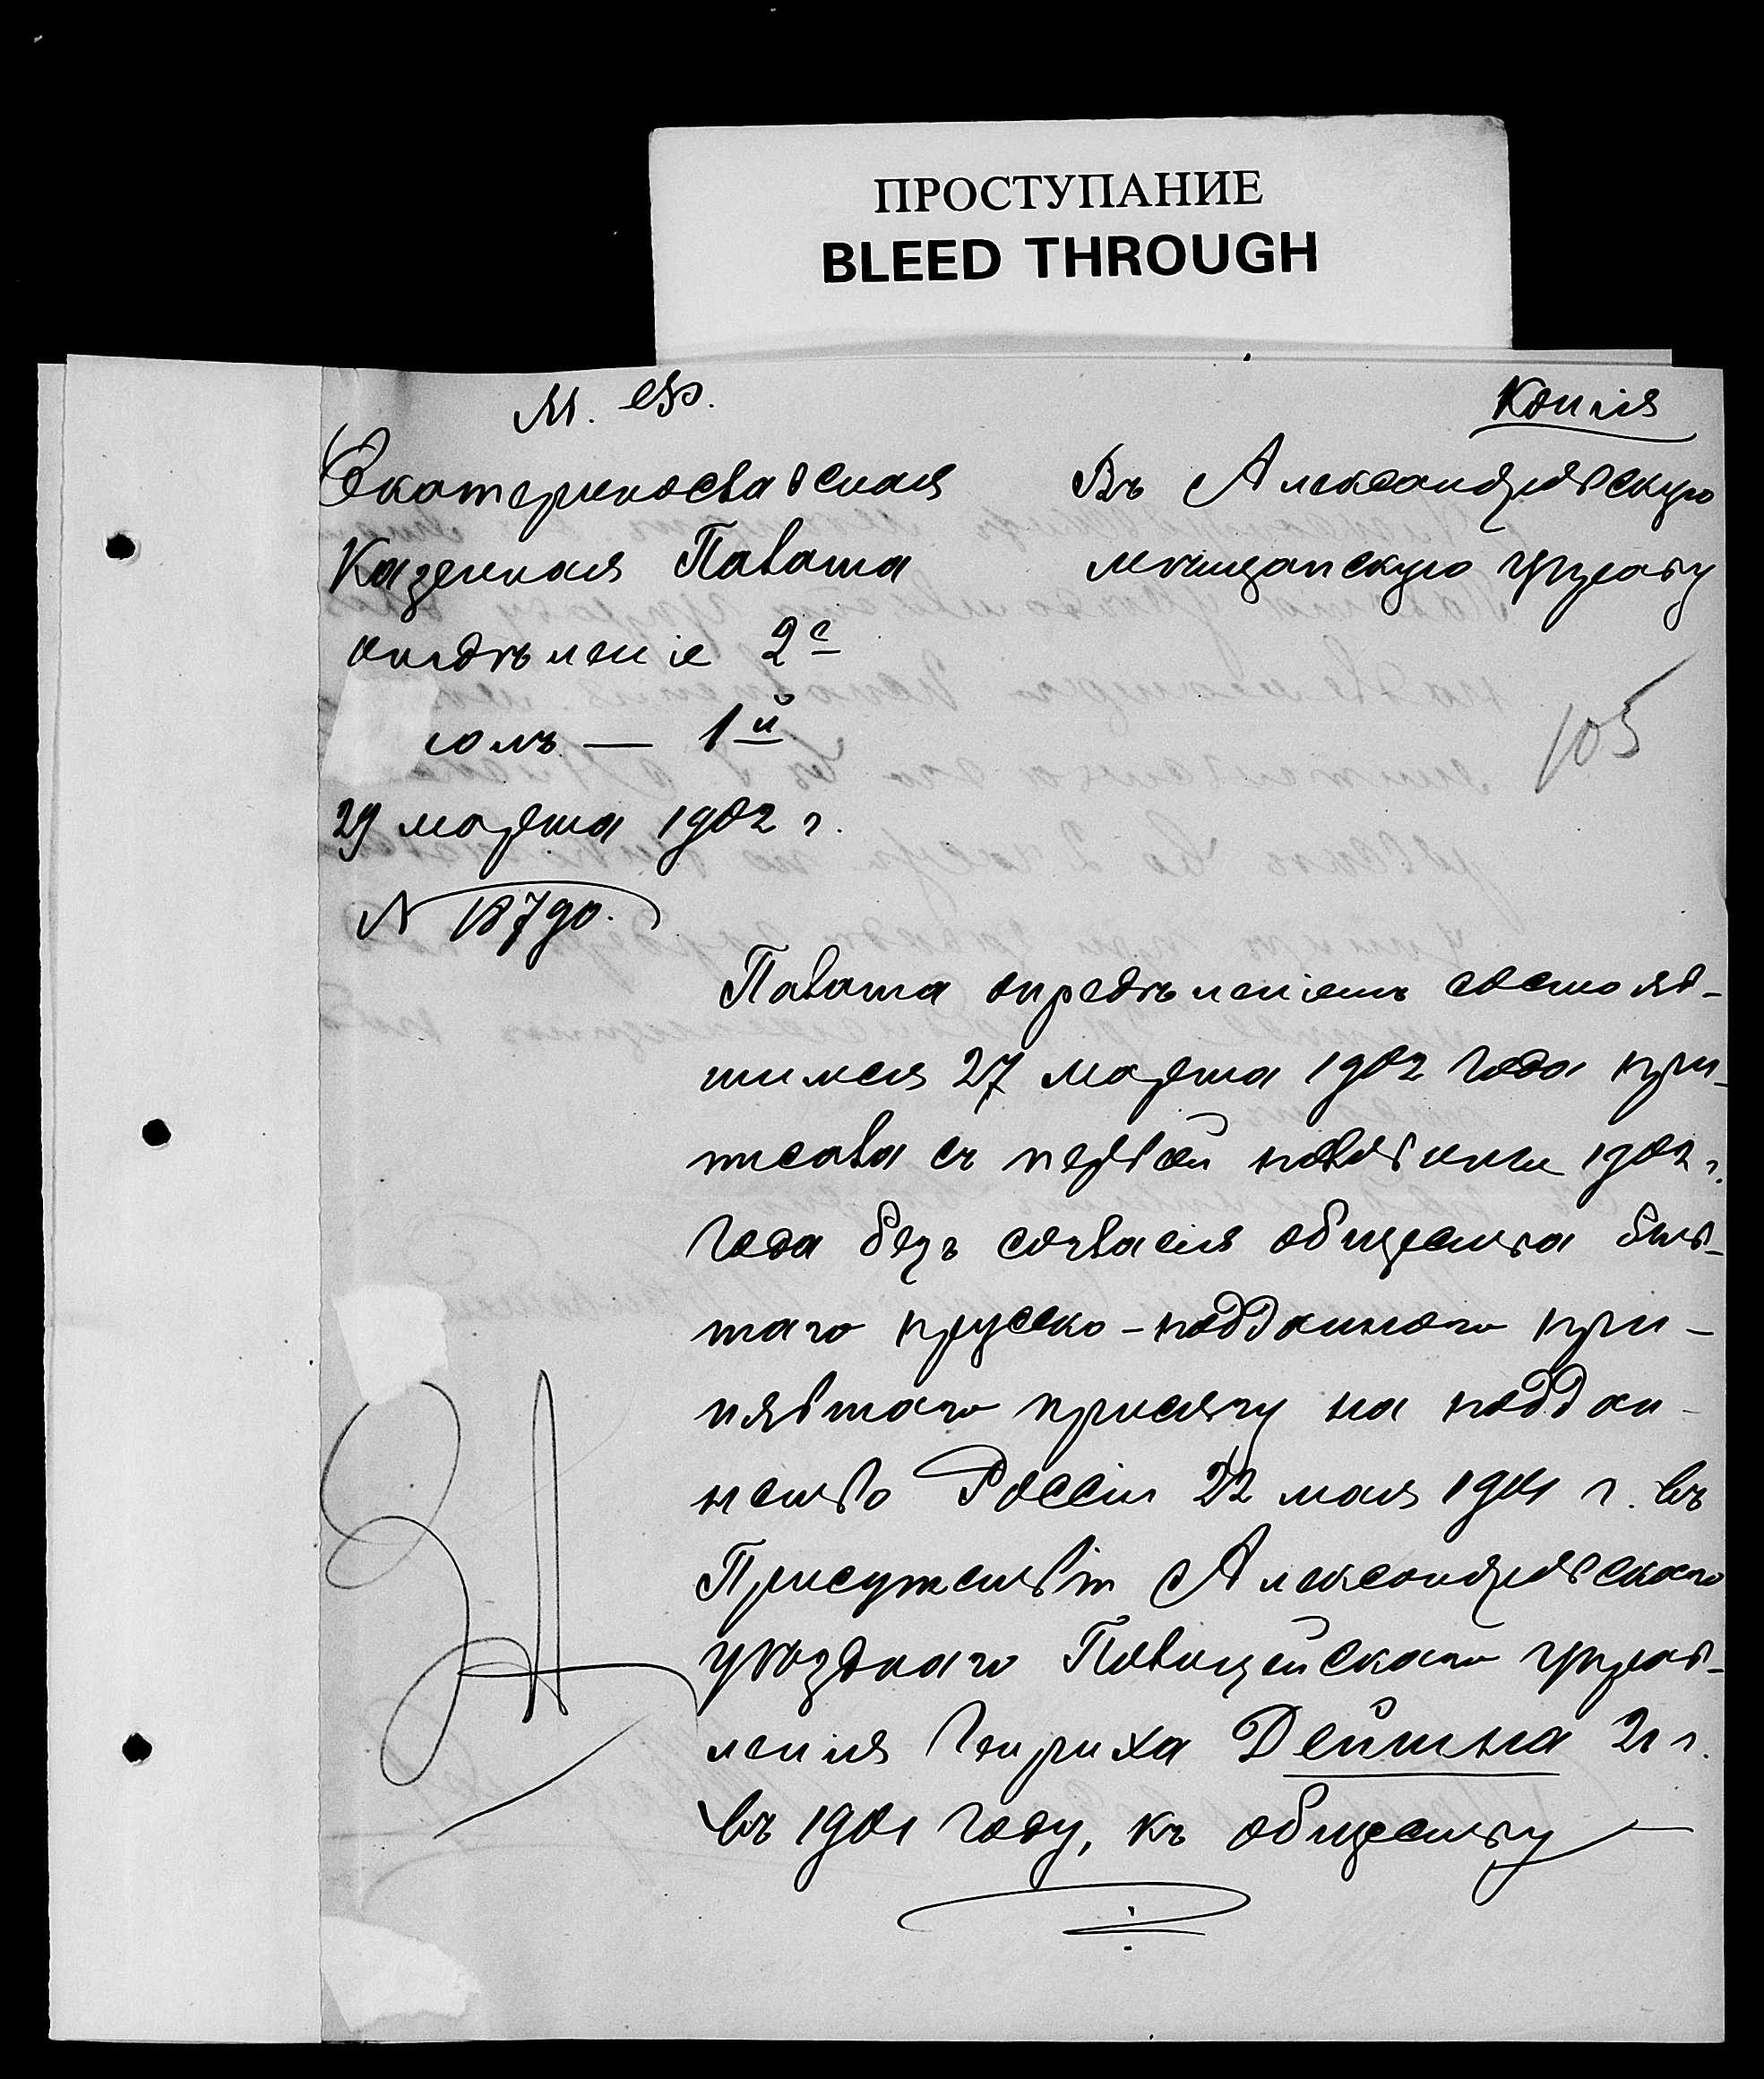 ПРОСТУПАНИЕ
BLEED THROUGH
М. Ф.
Копія
Екатеринославская
Казенная Палата
отдѣленіе 2е
столъ — 1й
29 марта 1902 г.
№ 18790.
Въ Александровскую
мѣщанскую управу
105
Палата опредѣленіемъ состояв-
шимся 27 марта 1902 года при-
писала съ первой половины 1902 г.
года безъ согласія общества быв-
шаго прусско-подданнаго при-
нявшаго присягу на поддан-
нство Россіи 22 мая 1901 г. въ
Присутствіи Александровскаго
уѣзднаго Полицейскаго управ-
ленія Генриха Деймына 21 г.
въ 1901 году, къ обществу